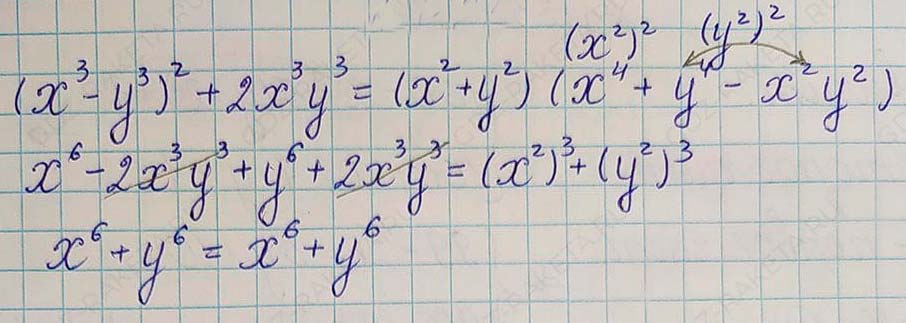 (x²)² (y²)²
(x³ - y³)² + 2x³y³ = (x² + y²) (x⁴ + y⁴ - x²y²)
x⁶ - 2x³y³ + y⁶ + 2x³y³ = (x²)³ + (y²)³
x⁶ + y⁶ = x⁶ + y⁶